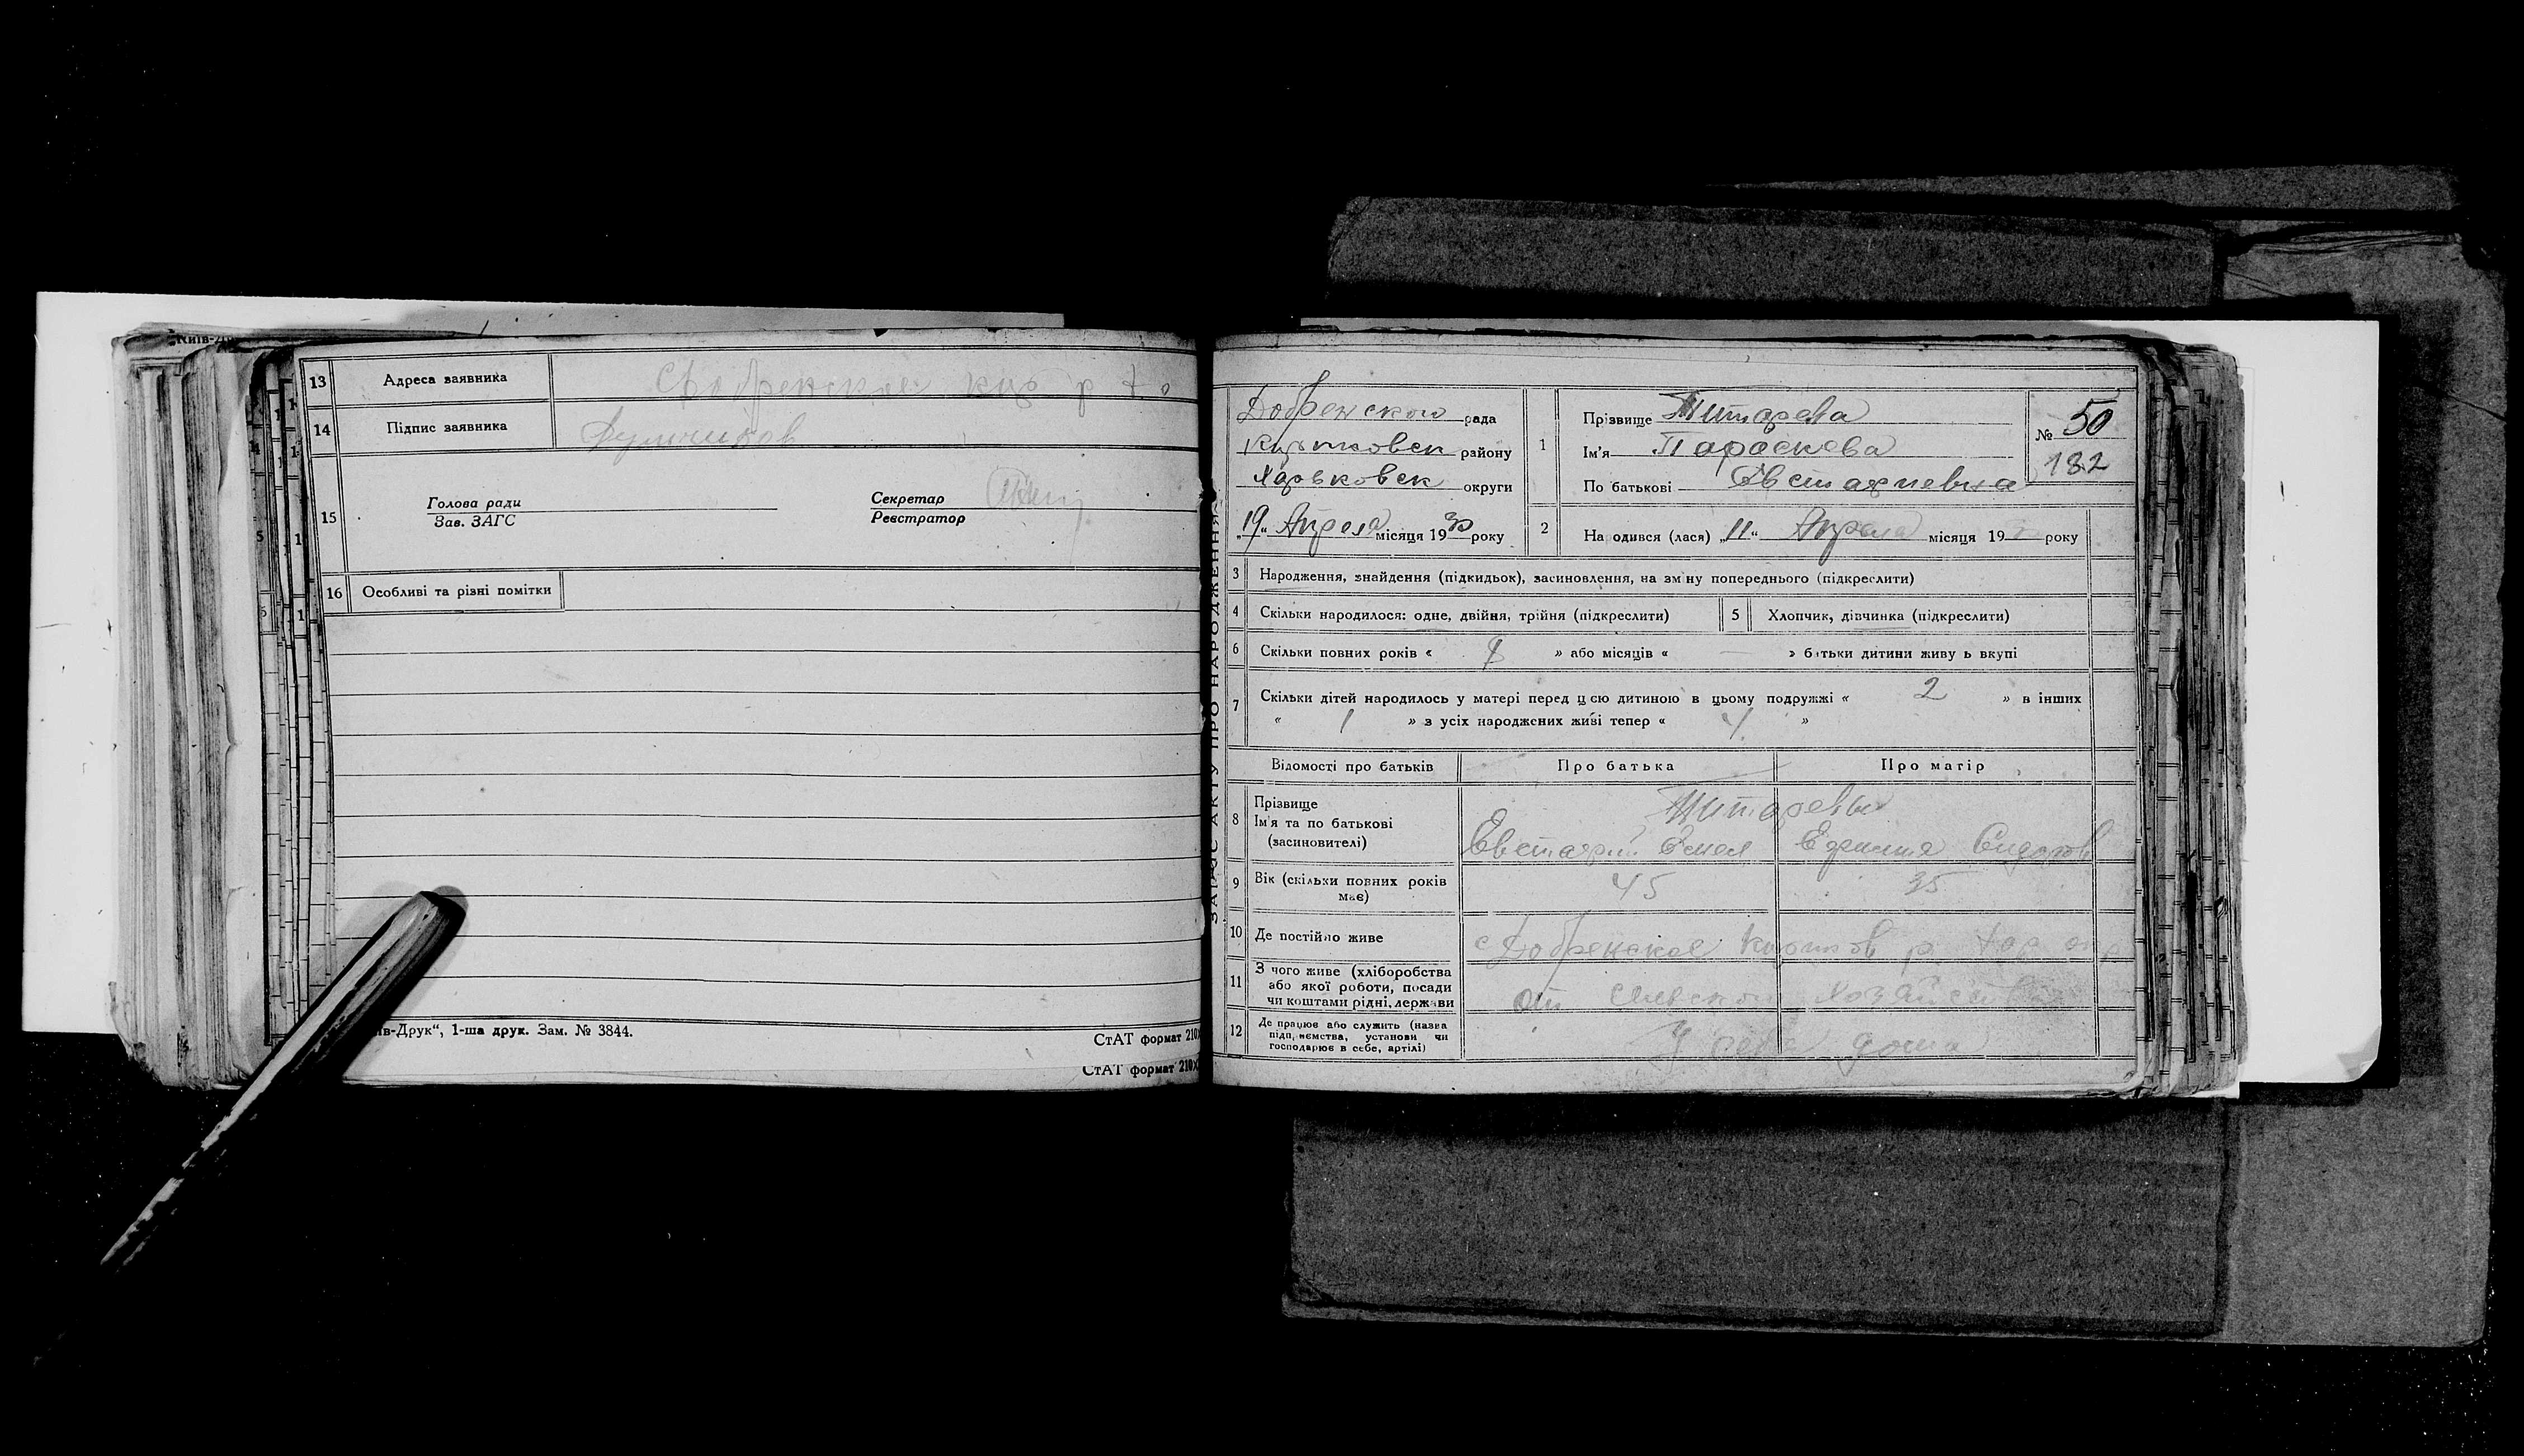 Київ-Др
13 Адреса заявника
14 Підпис заявника
15 Голова ради
Зав. ЗАГС
Секретар
Реєстратор
16 Особливі та різні помітки
в-Друк“, 1-ша друк. Зам. № 3844.
СтАТ формат 210
СтАТ формат 210
ЗАПИС АКТУ ПРО НАРОДЖЕННЯ
Добренской рада
района
Харьковск округи
„19“ Апреля місяця 1930 року
1 Прізвище Титарева
Ім'я Параскева
По батькові Евстафиевна
№ 50
182
2 Народився (лася) „11“ Апреля місяця 19 року
3 Народження, знайдення (підкидьок), засиновлення, на зміну попереднього (підкреслити)
4 Скільки народилося: одне, двійня, трійня (підкреслити)
5 Хлопчик, дівчинка (підкреслити)
6 Скільки повних років « » або місяців « — » батьки дитини живуть вкупі
7 Скільки дітей народилось у матері перед цією дитиною в цьому подружжі « 2 » в інших
« 1 » з усіх народжених живі тепер « 4 »
Відомості про батьків Про батька Про матір
8 Прізвище
Ім'я та по батькові
(засиновителі)
Титаревы
Евстафий
9 Вік (скільки повних років
має)
45 35
10 Де постійно живе
с Добренское
11 З чого живе (хліборобства
або якої роботи, посади
чи коштами рідні, держави
от сельского хозяйства
12 Де працює або служить (назва
підприємства, установи чи
господарює в себе, артілі)
У себя дома